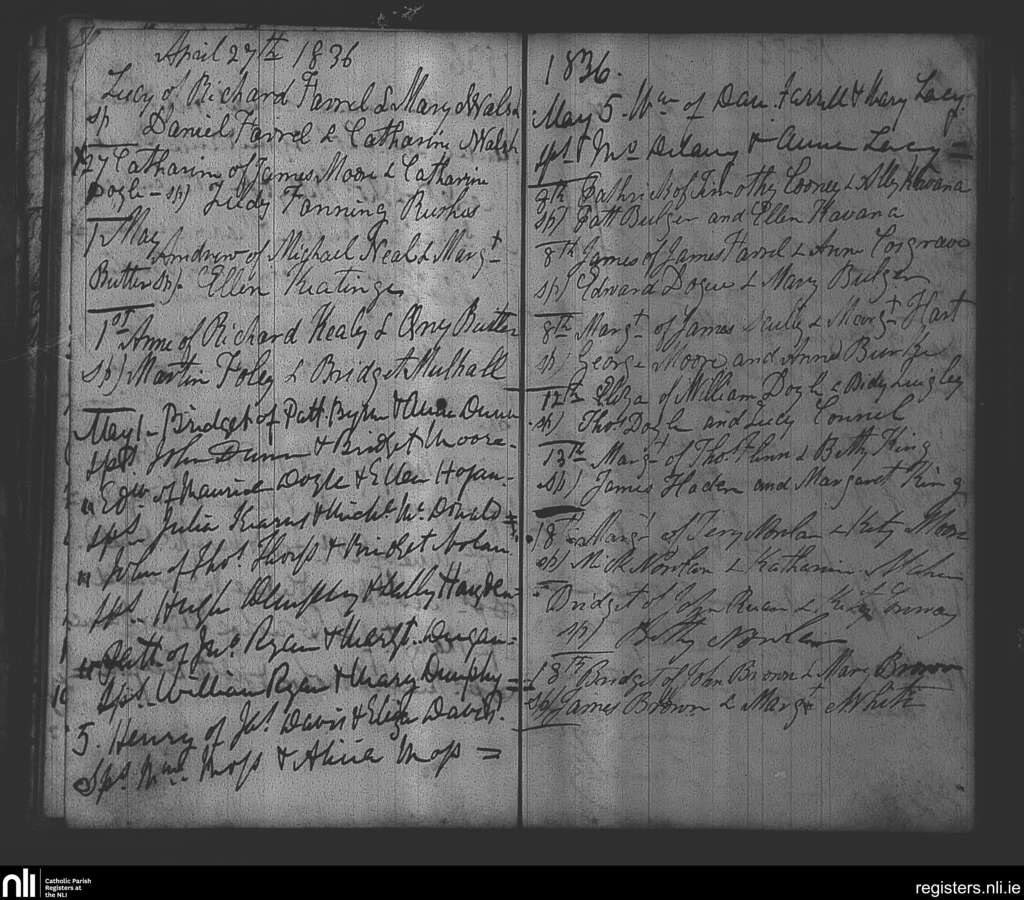 April 27th 1836
Lucy of Richard Farrel & Mary Walsh
sp Daniel Farrel & Catharine Walsh
27 Catharine of James Moore & Catharine
Dogle - sp) Judy Fanning
1 May
Andrew of Michael Neal & Margt
Butler sp). Ellen Keatinge
1st Anne of Richard Healy & Butler
sp) Martin Foley & Bridget Mulhall
May 1 - Bridget of Patt. Byrn & Anne Dunn
sps. John Dunn & Bridget Moore -
" Edwd. of Maurice Doyle & Ellen Hogan -
sps. Julia Kearns & Michl. McDonald =
" Wm of Thos. Thorp & Bridget Nolan
sps. Hugh Dunphy & Sally Hayden -
" Patt of Jno. Ryan & Margt. Dugan =
sps. William Ryan & Mary Dunphy =
5. Henry of Jas. Davis & Eliza Davis.
Sps. Wm. Moss & Alicia Moss =
1836.
May 5. Wm of Dan. Farrell & Mary Lacy.
sps. Delany & Anne Lacy =
8th Pathrick of Timothy Cooney & Ally Kavana
sp) Patt Bulger and Ellen Kavana
8th James of James Farrel & Anne Cosgrave
sp) Edward Dogue & Mary Bulger
8th Margt. of James & Margt Hart
sp) George Moore and Anne Burke
12th Eliza of William Dogle & Bidy Quigley
sp) Thos Dogle and Lucy Connel
13th Margt of Thos Flinn & Betty King
sp) James Haden and Margaret King
18th Margt of Terry Nowlan & Katy Moore
sp) Mick Nowlan & Katharine
Bridget of John Ruan & Kitty
sp) Betty Nowlan
18th Bridget of John Brown & Mary Brown
sp) James Brown & Margt White
nli
Catholic Parish
Registers at
the NLI
registers.nli.ie